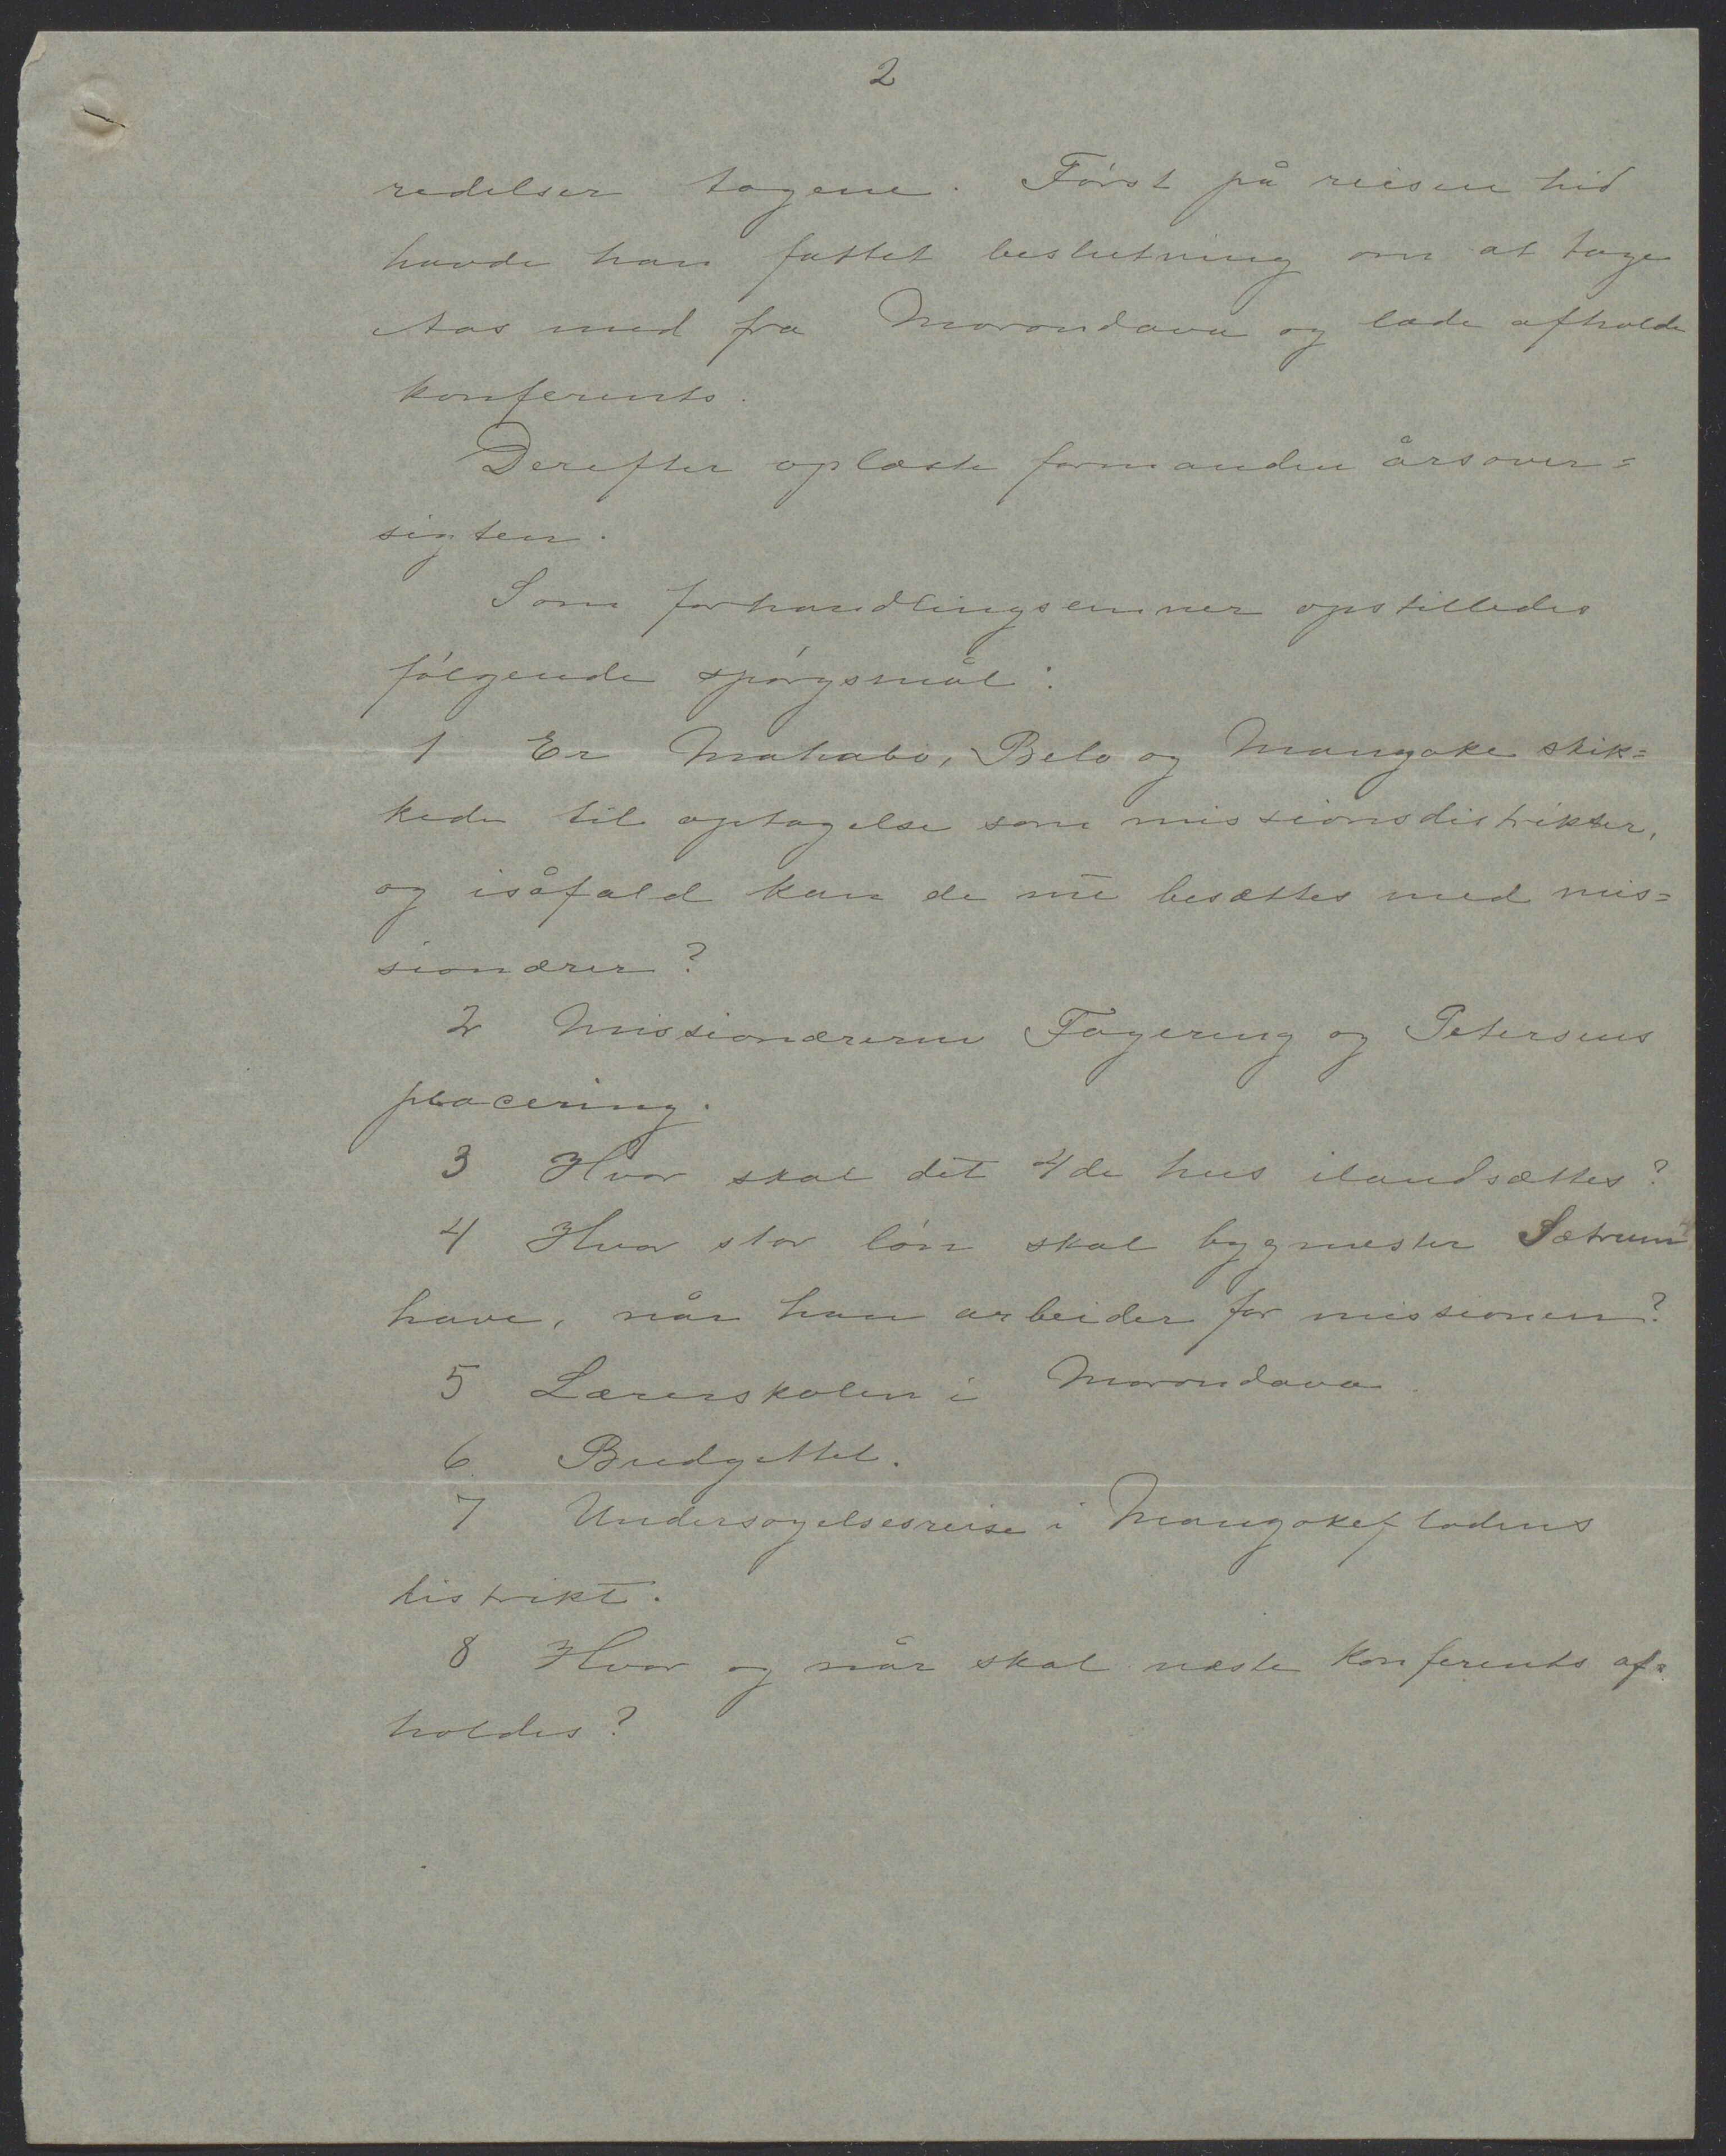 2
redelser tagene. Først på reisen hid
havde han fattet beslutning om at tage
Aas med fra Morondava og lade afholde
konferents.
Derefter oplæste formanden årsover=
sigten.
Som forhandlingsemner opstilledes
følgende spørgsmål:
1 Er Mahabo, Belo og Mangoke skik=
kede til optagelse som missionsdistrikter,
og isåfald kan de nu besættes med mis=
sionærer?
2 Missionærerne Fagereng og Petersens
placering.
3 Hvor skal det 4de hus ilandsættes?
4 Hvor stor løn skal bygmester Sætrum
have, når han arbeider for missionen?
5 Lærerskolen i Morondava.
6 Budgettet.
7 Undersøgelsesreise i Mangokeflodens
distrikt.
8 Hvor og når skal næste konferents af=
holdes?